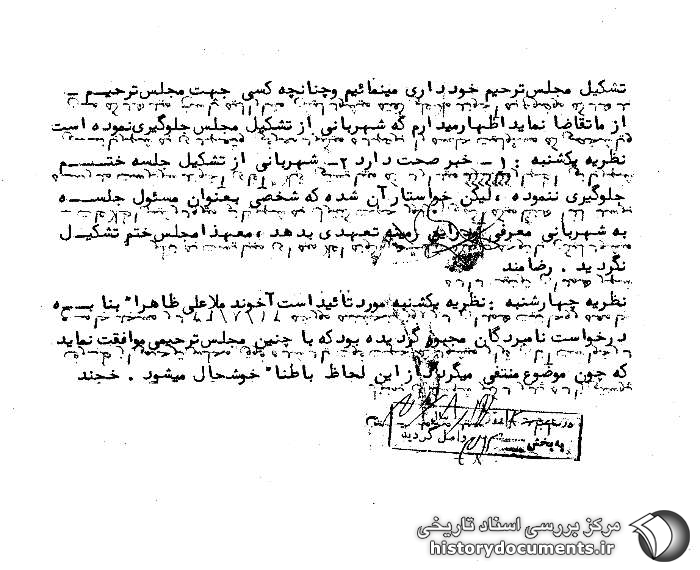 تشکیل مجلس ترحیم خودداری مینمائیم وچنانچه کسی جهت مجلس ترحیم ـ
از ماتقاضا نماید اظهارمیدارم که شهربانی از تشکیل مجلس جلوگیری نموده است
نظریه یکشنبه : ۱ـ خبر صحت دارد ۲ـ شهربانی از تشکیل جلسه ختم
جلوگیری ننموده ، لیکن خواستار آن شده که شخصی بعنوان مسئول جلسه
به شهربانی معرفی زمینه تعهدی بدهد ، معهذا مجلس ختم تشکیل
نگردید . رضامند
نظریه چهارشنبه : نظریه یکشنبه مورد تائید است آخوند ملاعلی ظاهرا" بنا به
درخواست نامبردگان مجبور گردیده بود که با چنین مجلس ترحیمی موافقت نماید
که چون موضوع منتفی میگردد از این لحاظ باطنا" خوشحال میشود . خجند
به بخش واصل گردید
مرکز بررسی اسناد تاریخی
historydocuments.ir